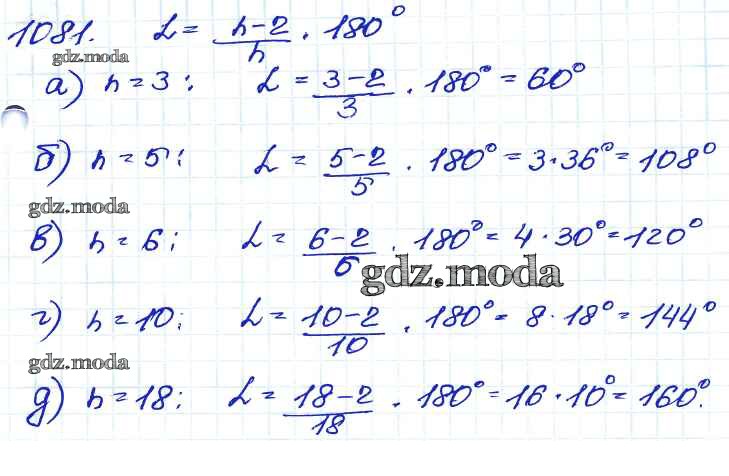 1081. α = (n-2)/n · 180°
gdz.moda
а) n = 3 : α = (3-2)/3 · 180° = 60°
б) n = 5 ; α = (5-2)/5 · 180° = 3·36° = 108°
gdz.moda
в) n = 6 ; α = (6-2)/6 · 180° = 4·30° = 120°
gdz.moda
г) n = 10 ; α = (10-2)/10 · 180° = 8·18° = 144°
gdz.moda
д) n = 18 ; α = (18-2)/18 · 180° = 16·10° = 160°.